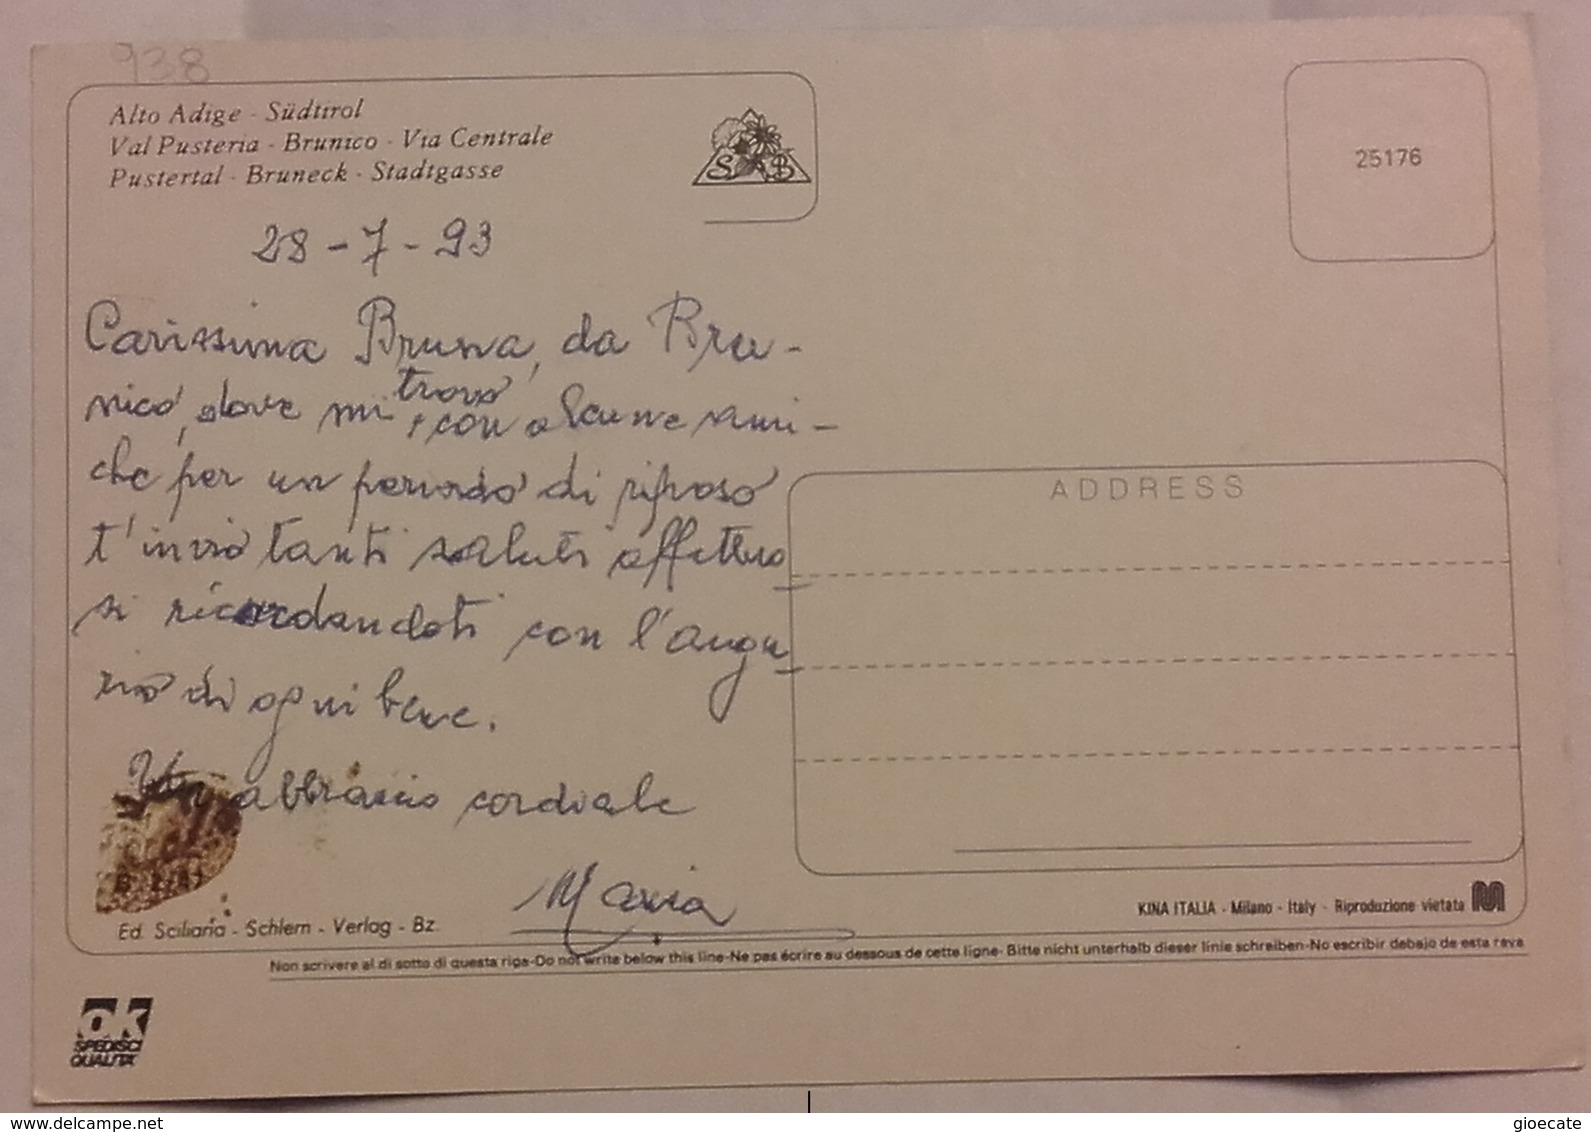 938
Alto Adige - Südtirol
Val Pusteria - Brunico - Via Centrale
Pustertal - Bruneck - Stadtgasse
S B
25176
28-7-93
Carissima Bruna, da Bru-
nico, dove mi trovo, con alcune ami-
che per un periodo di riposo
t'invio tanti saluti affettuo
si ricordandoti con l'augu
rio di ogni bene.
Un abbraccio cordiale
Maria
ADDRESS
Ed. Sciliaria - Schlern - Verlag - Bz.
KINA ITALIA - Milano - Italy - Riproduzione vietata
Non scrivere al di sotto di questa riga-Do not write below this line-Ne pas écrire au dessous de cette ligne- Bitte nicht unterhalb dieser linie schreiben-No escribir debajo de esta raya
ok
SPEDISCI
QUALITA'
www.delcampe.net
gioecate